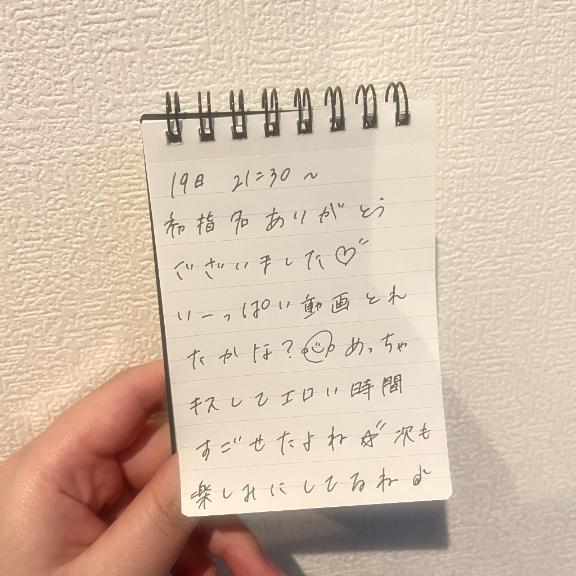 19日 21:30〜
初指名ありがとう
ございました♡
いーっぱい動画とれ
たかな?☺めっちゃ
キスしてエロい時間
すごせたよね☆次も
楽しみにしてるね♪